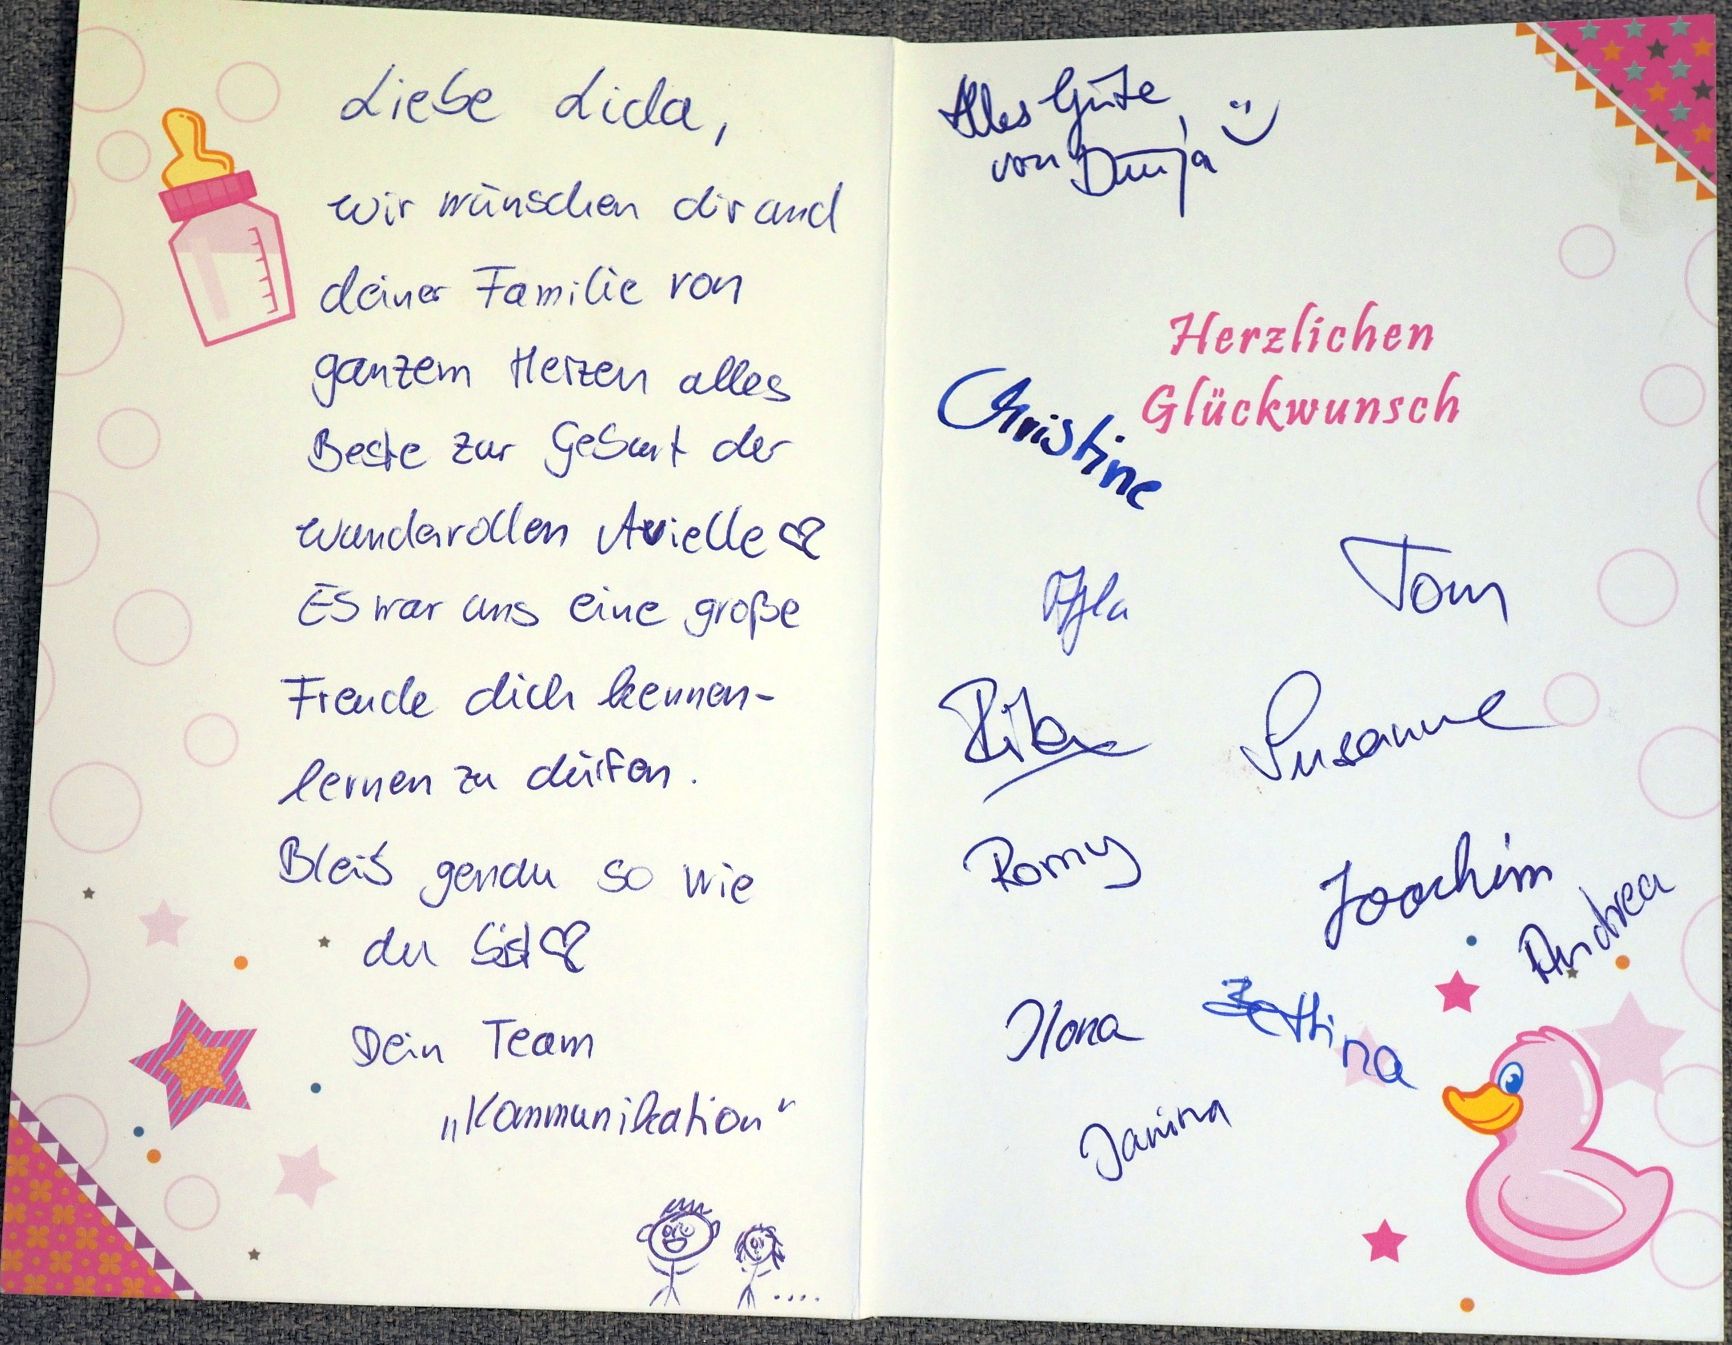 Liebe Lida,
wir wünschen dir und
deiner Familie von
ganzem Herzen alles
Beste zur Geburt der
wundervollen Avielle
Es war uns eine große
Freude dich kennen-
lernen zu dürfen.
Bleib genau so wie
du bist
Dein Team
„Kommunikation“
Alles Gute,
von Dunja
Herzlichen
Glückwunsch
Christine
Tom
Rita
Susanne
Romy
Joachim
Andrea
Ilona
Bettina
Janina